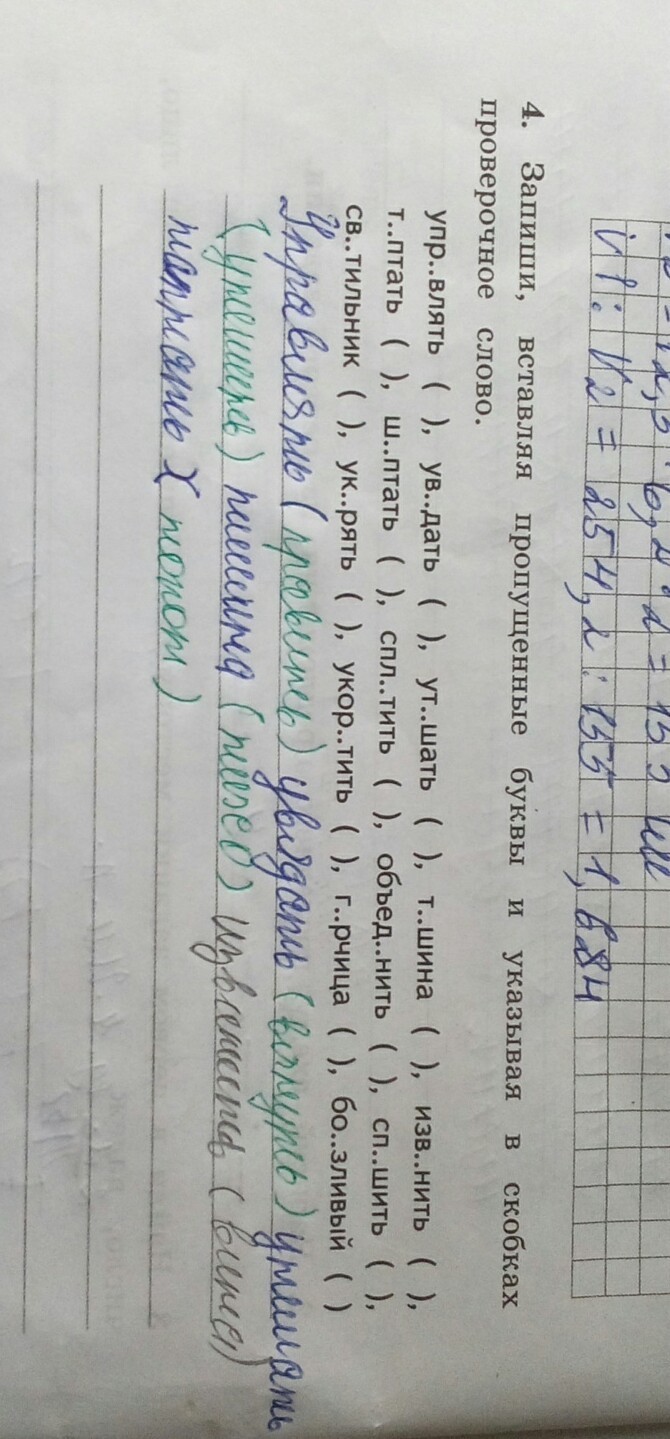 V1 : V2 = 254,2 : 155 = 1,684
4. Запиши, вставляя пропущенные буквы и указывая в скобках
проверочное слово.
упр..влять ( ), ув..дать ( ), ут..шать ( ), т..шина ( ), изв..нить ( ),
т..птать ( ), ш..птать ( ), спл..тить ( ), объед..нить ( ), сп..шить ( ),
св..тильник ( ), ук..рять ( ), укор..тить ( ), г..рчица ( ), бо..зливый ( )
Управлять (править) увядать (вянуть) утешать
(утешить) тишина (тихо)
топтать (топот)